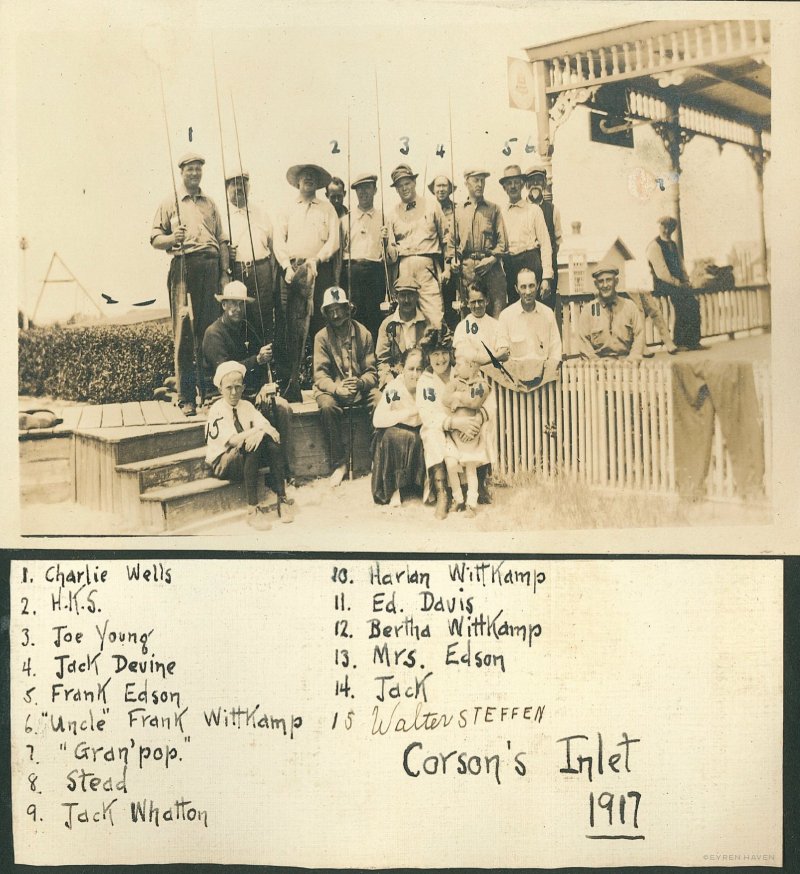 1
2
3
4
5 6
7
10
11
12
13
14
15
1. Charlie Wells
2. H.K.S.
3. Joe Young
4. Jack Devine
5. Frank Edson
6. "Uncle" Frank WittKamp
7. "Gran'pop."
8. Stead
9. Jack Whatton
10. Harlan WittKamp
11. Ed. Davis
12. Bertha WittKamp
13. Mrs. Edson
14. Jack
15 Walter STEFFEN
Corson's Inlet
1917
©EYREN HAVEN